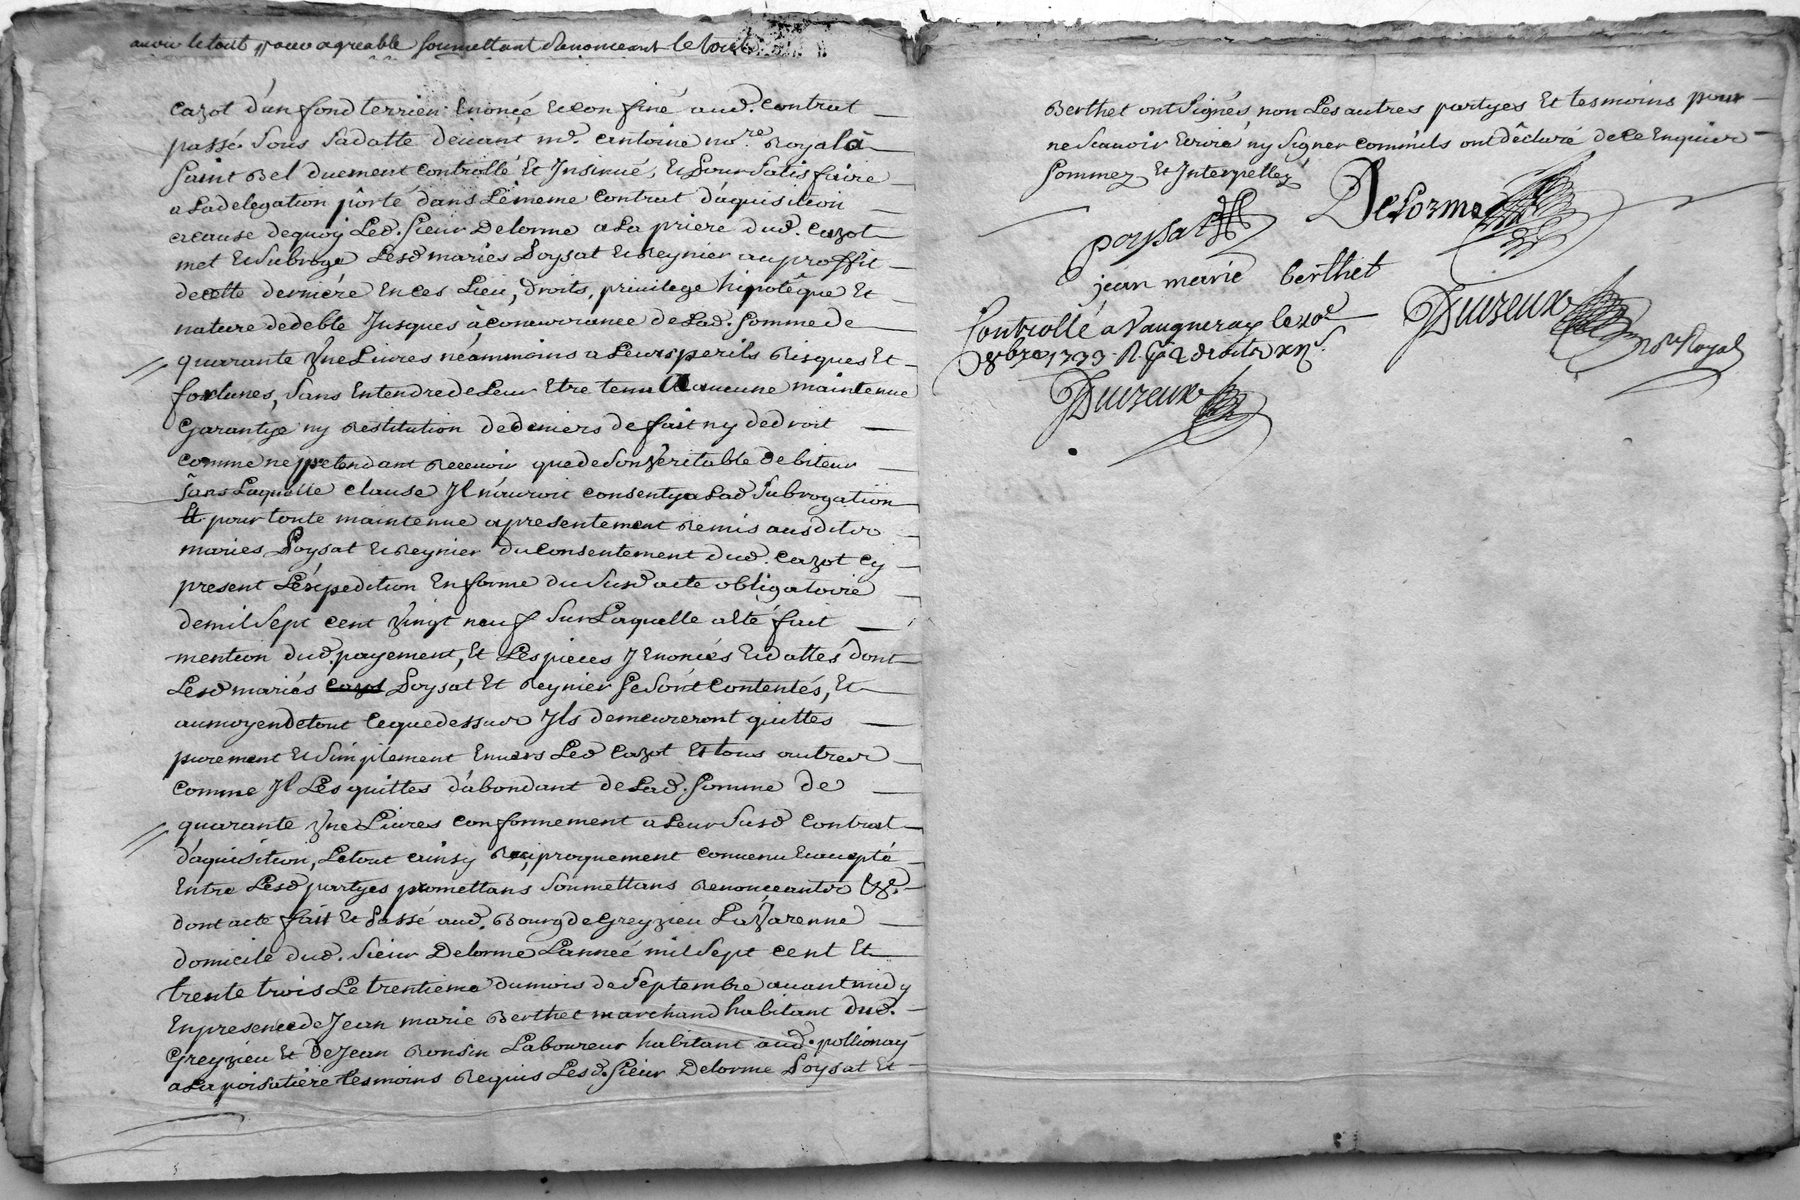 avoir le tout pour agreable soumettant Renonceant le tout
cazot d'un fond terrien Enoncé Et confiné aud. contrat
passé sous sa datte devant me. antoine nore. Royal à
saint Bel duement controllé Et Insinué, Et pour satisfaire
a La delegation porté dans Le meme contrat d'aquisition
a cause dequoy Led. sieur Delorme a La priere dud. cazot
met Et subroge Lesd mariés Poysat Et Reynier au proffit
de cette derniére En ces Lieu, droits, privilege hipotêque Et
nature de debte Jusques à concurrance de Lad. somme de
quarante Une Livres néammoins a Leurs perils Risques Et
fortunes, sans Entendre de Leur Etre tenu A aucune maintenue
Garantye ny Restitution de deniers de fait ny de droit
comme ne pretendant Recevoir que de son veritable debiteur
sans Laquelle clause Il n'auroit consenty a Lad subrogation
Et pour toute maintenue a presentement Remis ausdits
mariés Poysat Et Reynier du consentement dud. cazot cy
present L'éxpedition En forme du susd acte obligatoire
de mil sept cent vingt neuf sur Laquelle a été fait
mention dud. payement, Et Les pieces y Enoncés Et dattés dont
Lesd mariés Poysat Et Reynier se sont contentés, Et
au moyen de tout ce que dessus Ils demeureront quittes
purement Et simplement Envers Led cazot Et tous autres
comme Il Les quittes d'abondant de Lad. somme de
quarante Une Livres conformement a Leur susd contrat
d'aquisition, Le tout ainsy Reciproquement convenu Et accepté
Entre Lesd partyes promettans soumettans Renonceants &c.
dont acte fait Et Passé aud. Bourg de Greyzieu La Varenne
domicile dud. sieur Delorme L'année mil sept cent Et
trente trois Le trentieme du mois de septembre avant midy
En presence de Jean marie Berthet marchand habitant dud.
Greyzieu Et de Jean Ronsin Laboureur habitant aud. pollionay
a La poisatiére tesmoins Requis Lesd. sieur Delorme Poysat Et
Berthet ont signés, non Les autres partyes Et tesmoins pour
ne scavoir Ecrire ny signer comm'ils ont déclaré de ce Enquis
sommez Et Interpellez
poysat Delorme
jean marie berthet
Controllé a Vaugneray le 10e
8bre 1733. R. droits
Nre Royal